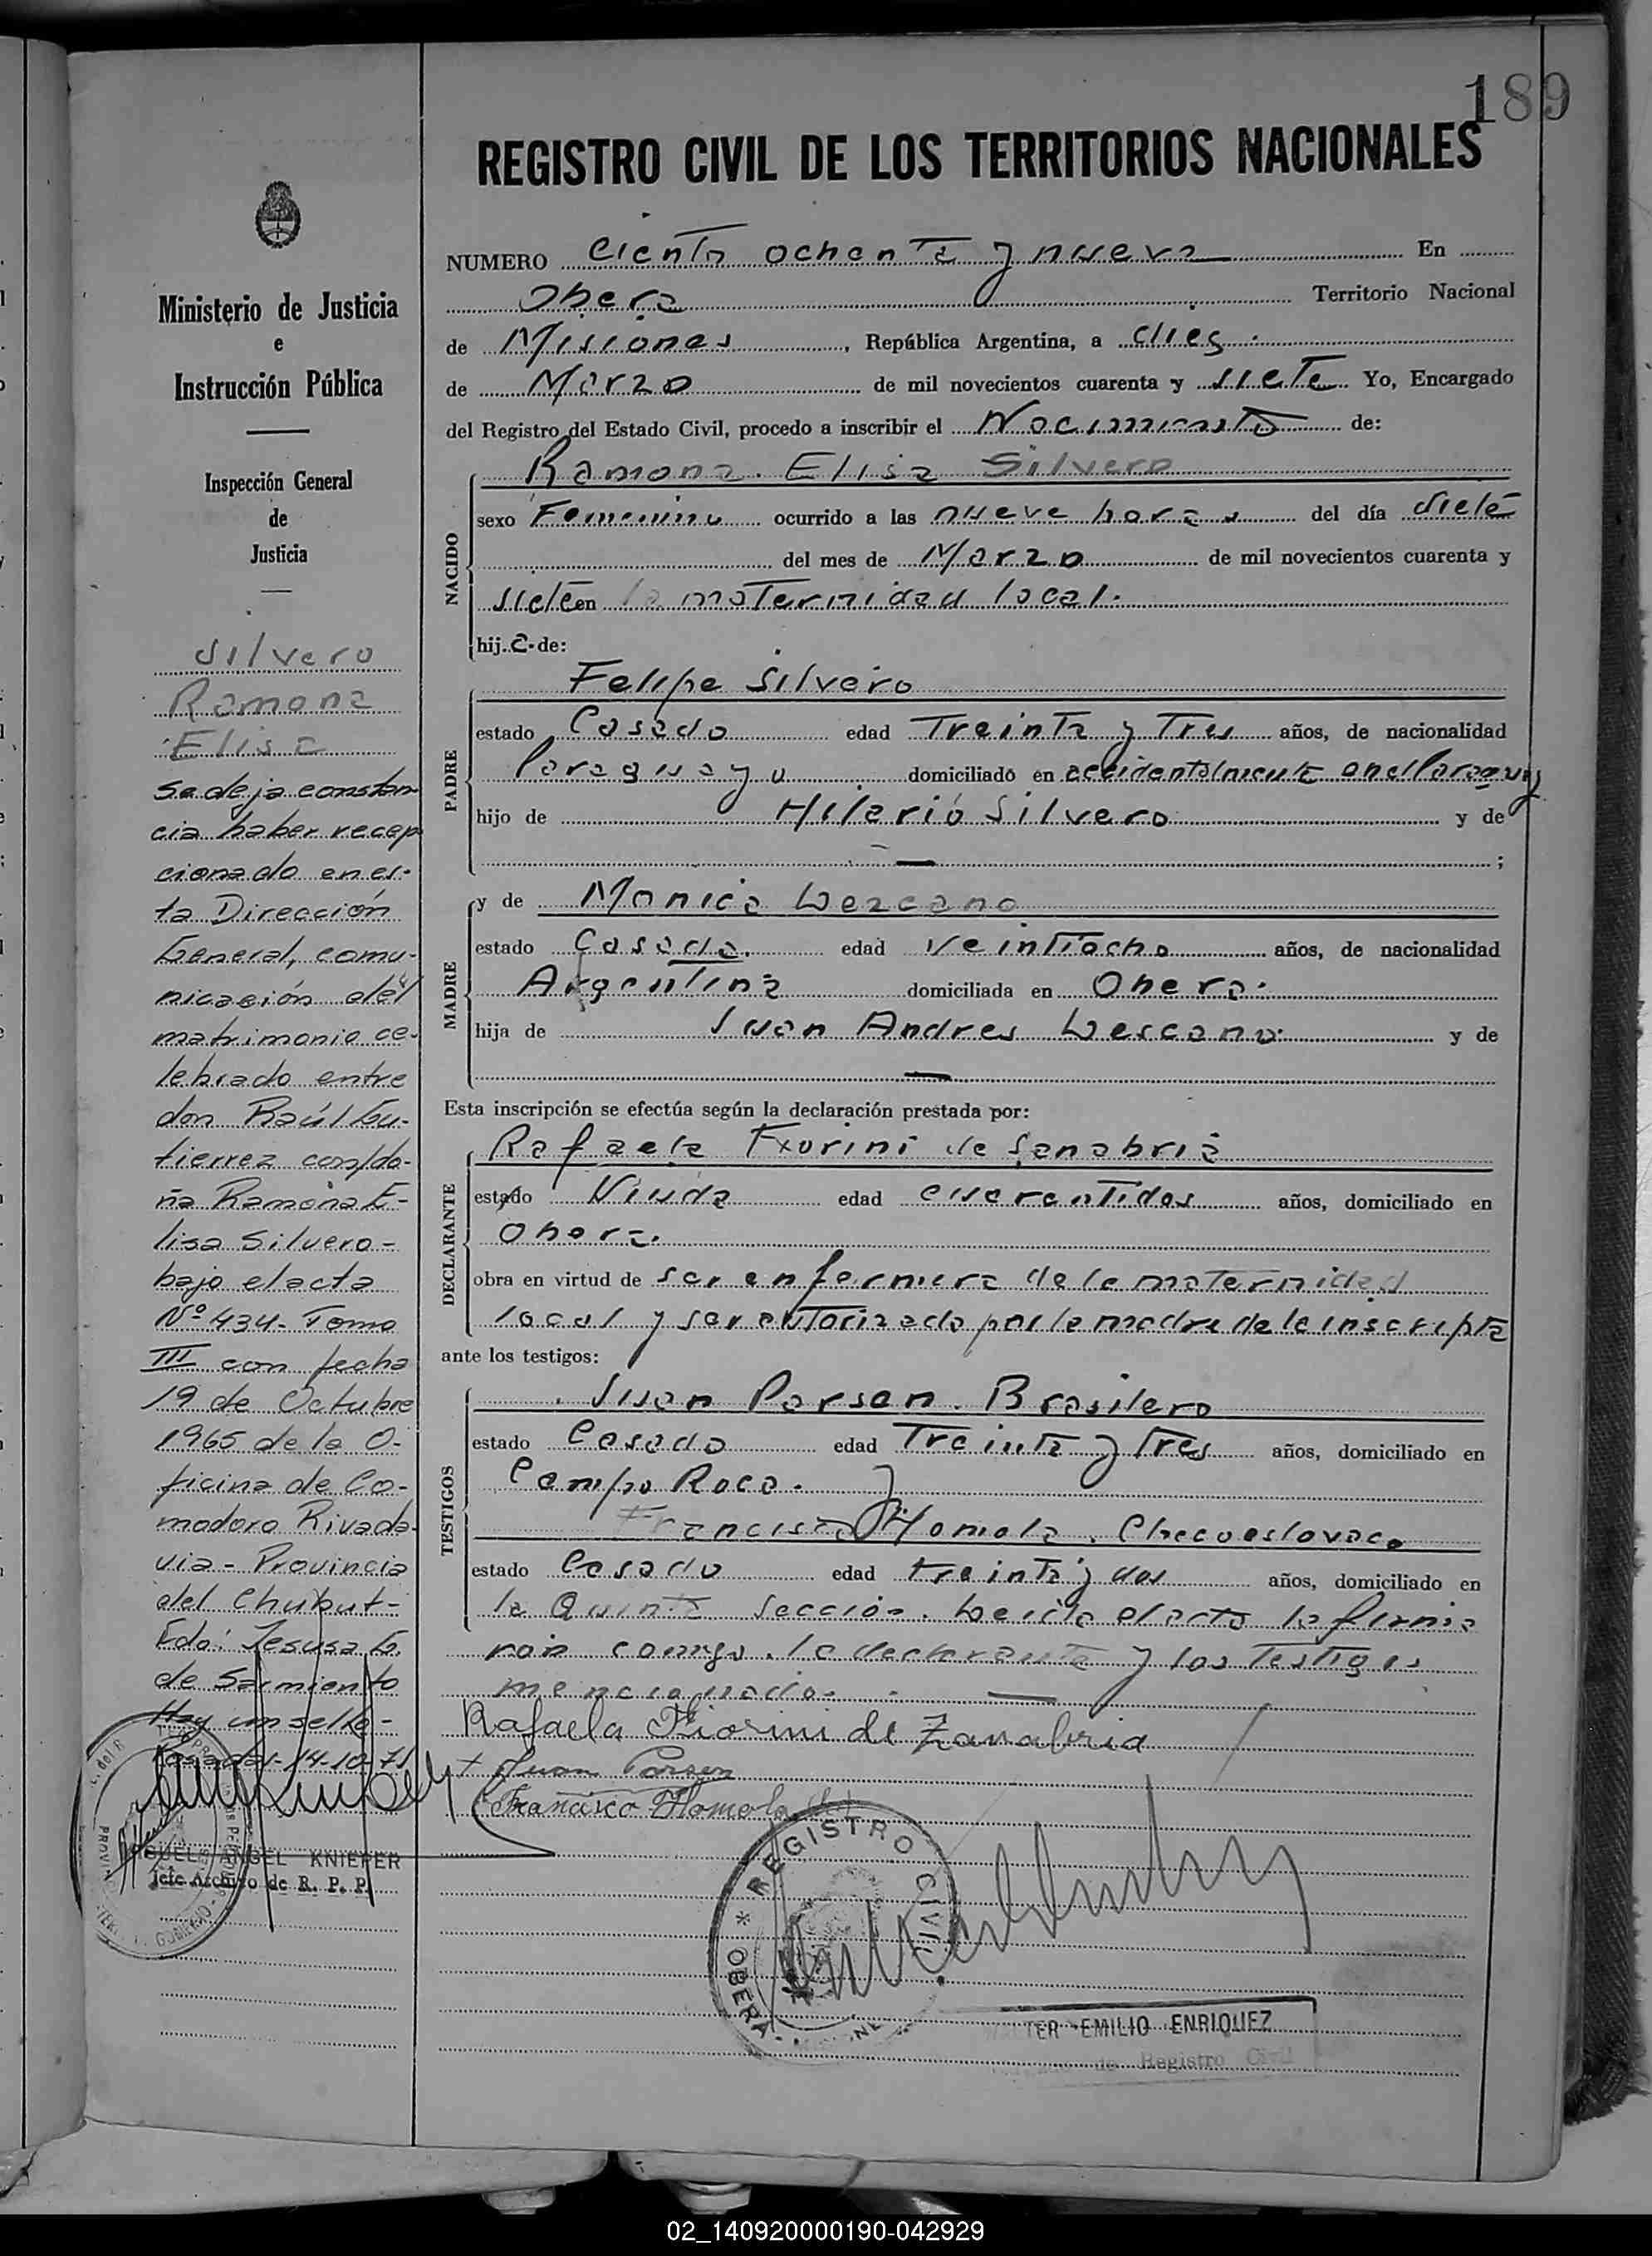 189
REGISTRO CIVIL DE LOS TERRITORIOS NACIONALES
NUMERO ciento ochenta y nueve En
Obera Territorio Nacional
de Misiones, República Argentina, a dies
de Marzo de mil novecientos cuarenta y siete Yo, Encargado
del Registro del Estado Civil, procedo a inscribir el Nacimiento de:
NACIDO
Ramona Elisa Silvero
sexo Femenino ocurrido a las nueve horas del día siete
del mes de Marzo de mil novecientos cuarenta y
siete en la maternidad local.
hija de:
PADRE
Felipe Silvero
estado Casado edad Treinta y Tres años, de nacionalidad
Paraguaya domiciliado en accidentalmente en el Paraguay
hijo de Hilario Silvero y de
— ;
MADRE
y de Monica Lezcano
estado Casada. edad veintiocho años, de nacionalidad
Argentina domiciliada en Obera.
hija de Juan Andres Lescano y de
—
Esta inscripción se efectúa según la declaración prestada por:
DECLARANTE
Rafaela Fxorini de Sanabria
estado Viuda edad cuarentidos años, domiciliado en
Obera.
obra en virtud de ser enfermera de la maternidad
local y ser autorizada por la madre de la inscripta
ante los testigos:
TESTIGOS
Juan Parsen. Brasilero
estado Casado edad Treinta y Tres años, domiciliado en
Campo Roca. y
Francisco Homola. Checoeslovaco
estado Casado edad treinta y dos años, domiciliado en
la Quinta sección. Leida el acta la firma
ron comigo. la declarante y los Testigos
mencionados. —
Rafaela Fiorini de Zanabria
+ Juan Parsen
Francisco Homola
REGISTRO CIVIL
* OBERA
WALTER EMILIO ENRIQUEZ
de Registro Civil
Ministerio de Justicia
e
Instrucción Pública
Inspección General
de
Justicia
Silvero
Ramona
Elisa
Se deja constan
cia haber recep
cionado en es-
ta Dirección
General, comu-
nicación del
matrimonio ce-
lebrado entre
don Raúl Gu-
tierrez con/do-
ña Ramona E-
lisa Silvero-
bajo el acta
Nº 434- Tomo
III con fecha
19 de Octubre
1965 de la O-
ficina de Co-
modoro Rivada-
via- Provincia
del Chubut-
Fdo: Jesusa G.
de Sarmiento
Hay un sello-
Posadas- 14-10-71
MIGUEL ANGEL KNIEPER
Jefe Archivo de R. P. P.
02_140920000190-042929